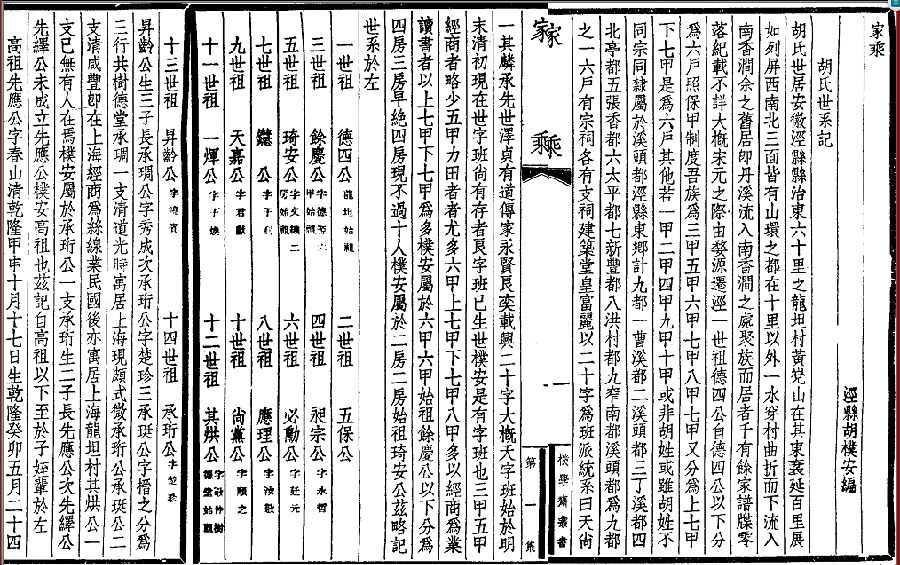 家乘
胡氏世系記
涇縣胡樸安編
胡氏世居安徽涇縣縣治東六十里之龍坦村黃山在其東袤延百里展
如列屏西南北三面皆有山環之都在十里以外一水穿村曲折而下流入
南香澗余之舊居即丹溪流入南香澗之處聚族而居者千有餘家譜牒零
落紀載不詳大概宋元之際由婺源遷涇一世祖德四公自德四公以下分
為六戶照保甲制度吾族為三甲五甲六甲七甲八甲七甲又分為上七甲
下七甲是為六戶其他若一甲二甲四甲九甲十甲或非胡姓或雖胡姓不
同宗同隸屬於溪頭都涇縣東鄉計九都一曹溪都二溪頭都三丁溪都四
北亭都五張香都六太平都七新豐都八洪村都九窄南都溪頭都為九都
之一六戶有宗祠各有支祠建築堂皇富麗以二十字為班派統系曰天尚
樸學齋叢書
家乘
一
第一集
一其麟承先世澤貞有道傳家永賢良奕載興二十字大概天字班始於明
末清初現在世字班尚有存者良字班已生世樸安是有字班也三甲五甲
經商者略少五甲力田者尤多六甲上七甲下七甲八甲多以經商為業
讀書者以上七甲下七甲為多樸安屬於六甲六甲始祖餘慶公以下分為
四房三房早絕四房現不過十人樸安屬於二房二房始祖琦安公茲略記
世系於左
一世祖 德四公 龍坦始祖 二世祖 五保公
三世祖 餘慶公 甲始祖 四世祖 昶宗公 字永哲
五世祖 琦安公 字文 二房始祖 六世祖 必勳公 字廷元
七世祖 公 字于 八世祖 應理公
九世祖 天嘉公 字君獻 十世祖 尚薰公 字順之
十一世祖 一煇公 字于煥 十二世祖 其烘公 樹德堂始祖
十三世祖 昇齡公 十四世祖 承珩公 字楚珍
昇齡公生三子長承琱公字秀成次承珩公字楚珍三承珽公字搢之分為
三行共樹德堂承琱一支清道光時寓居上海現頗式微承珩公承珽公二
支清咸豐即在上海經商為絲線業民國後亦寓居上海龍坦村其烘公一
支已無有人在焉樸安屬於承珩公一支承珩生二子長先應公次先繹公
先繹公未成立先應公樸安高祖也茲記自高祖以下至於子姪輩於左
高祖先應公字春山清乾隆甲申十月十七日生乾隆癸卯五月二十四